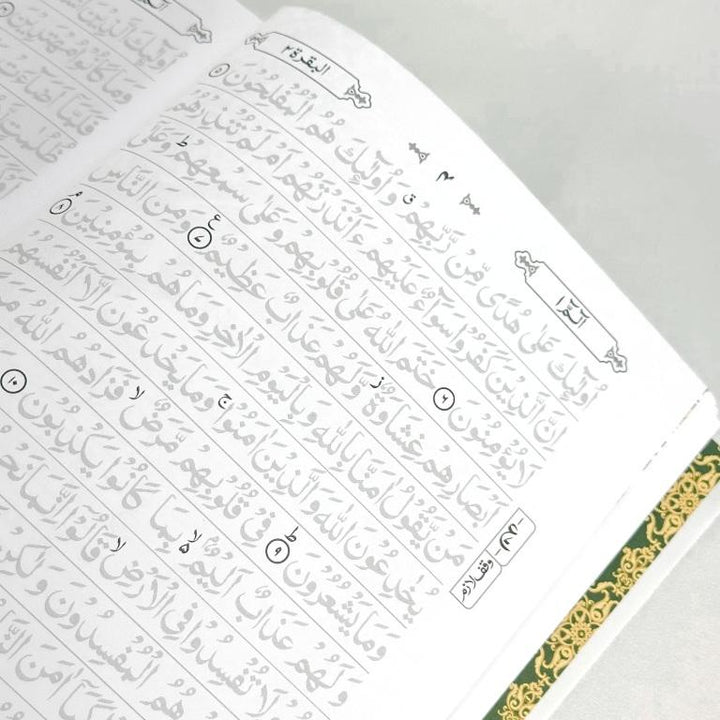 البقرة ٢
اُولٰٓئِكَ عَلٰى هُدًى مِّنْ رَّبِّهِمْ ۗ وَاُولٰٓئِكَ هُمُ الْمُفْلِحُوْنَ ٥
اِنَّ الَّذِيْنَ كَفَرُوْا سَوَآءٌ عَلَيْهِمْ ءَاَنْذَرْتَهُمْ اَمْ لَمْ تُنْذِرْهُمْ
لَا يُؤْمِنُوْنَ ٦ خَتَمَ اللّٰهُ عَلٰى قُلُوْبِهِمْ وَعَلٰى سَمْعِهِمْ ؕ وَعَلٰٓى
اَبْصَارِهِمْ غِشَاوَةٌ ز وَّلَهُمْ عَذَابٌ عَظِيْمٌ ٧ ع وَمِنَ النَّاسِ
مَنْ يَّقُوْلُ اٰمَنَّا بِاللّٰهِ وَبِالْيَوْمِ الْاٰخِرِ وَمَا هُمْ بِمُؤْمِنِيْنَ ٨ م
يُخٰدِعُوْنَ اللّٰهَ وَالَّذِيْنَ اٰمَنُوْا ۚ وَمَا يَخْدَعُوْنَ اِلَّآ اَنْفُسَهُمْ
وَمَا يَشْعُرُوْنَ ٩ فِيْ قُلُوْبِهِمْ مَّرَضٌ ۙ فَزَادَهُمُ اللّٰهُ
وَلَهُمْ عَذَابٌ اَلِيْمٌۢ ۙ بِمَا كَانُوْا يَكْذِبُوْنَ ١٠
لَا تُفْسِدُوْا فِي الْاَرْضِ ۙ قَالُوْٓا اِنَّمَا
هُمُ الْمُفْسِدُوْنَ وَلٰكِنْ
كَمَآ اٰمَنَ
وقف لازم
اُولٰٓئِكَ الَّذِيْنَ
وَمَا كَانُوْا مُهْتَدِيْنَ
فَلَمَّآ اَضَآءَتْ